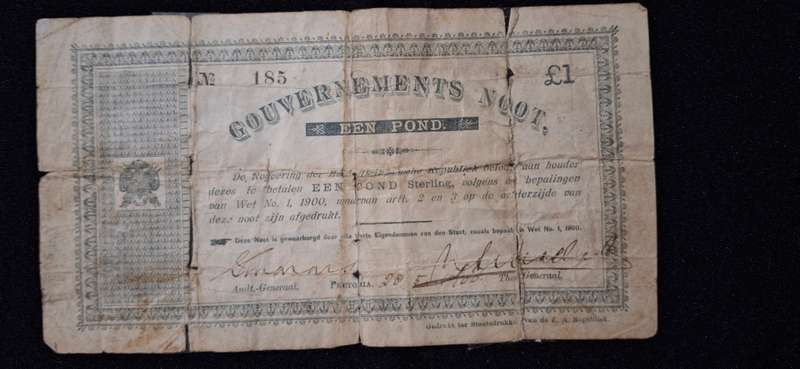 № 185 £1
GOUVERNEMENTS NOOT,
EEN POND.
De Regeering der Republiek aan houder
dezes te betalen EEN POND Sterling, volgens de bepalingen
van Wet No. 1, 1900, waarvan artt. 2 en 3 op de achterzijde van
deze noot zijn afgedrukt.
Deze Noot is gewaarborgd door alle Vaste Eigendommen van den Staat, zooals bepaald in Wet No. 1, 1900.
Audt.-Generaal. PRETORIA, 28 Generaal.
Gedrukt ter Staatsdrukkerij van de Z. A. Republiek.